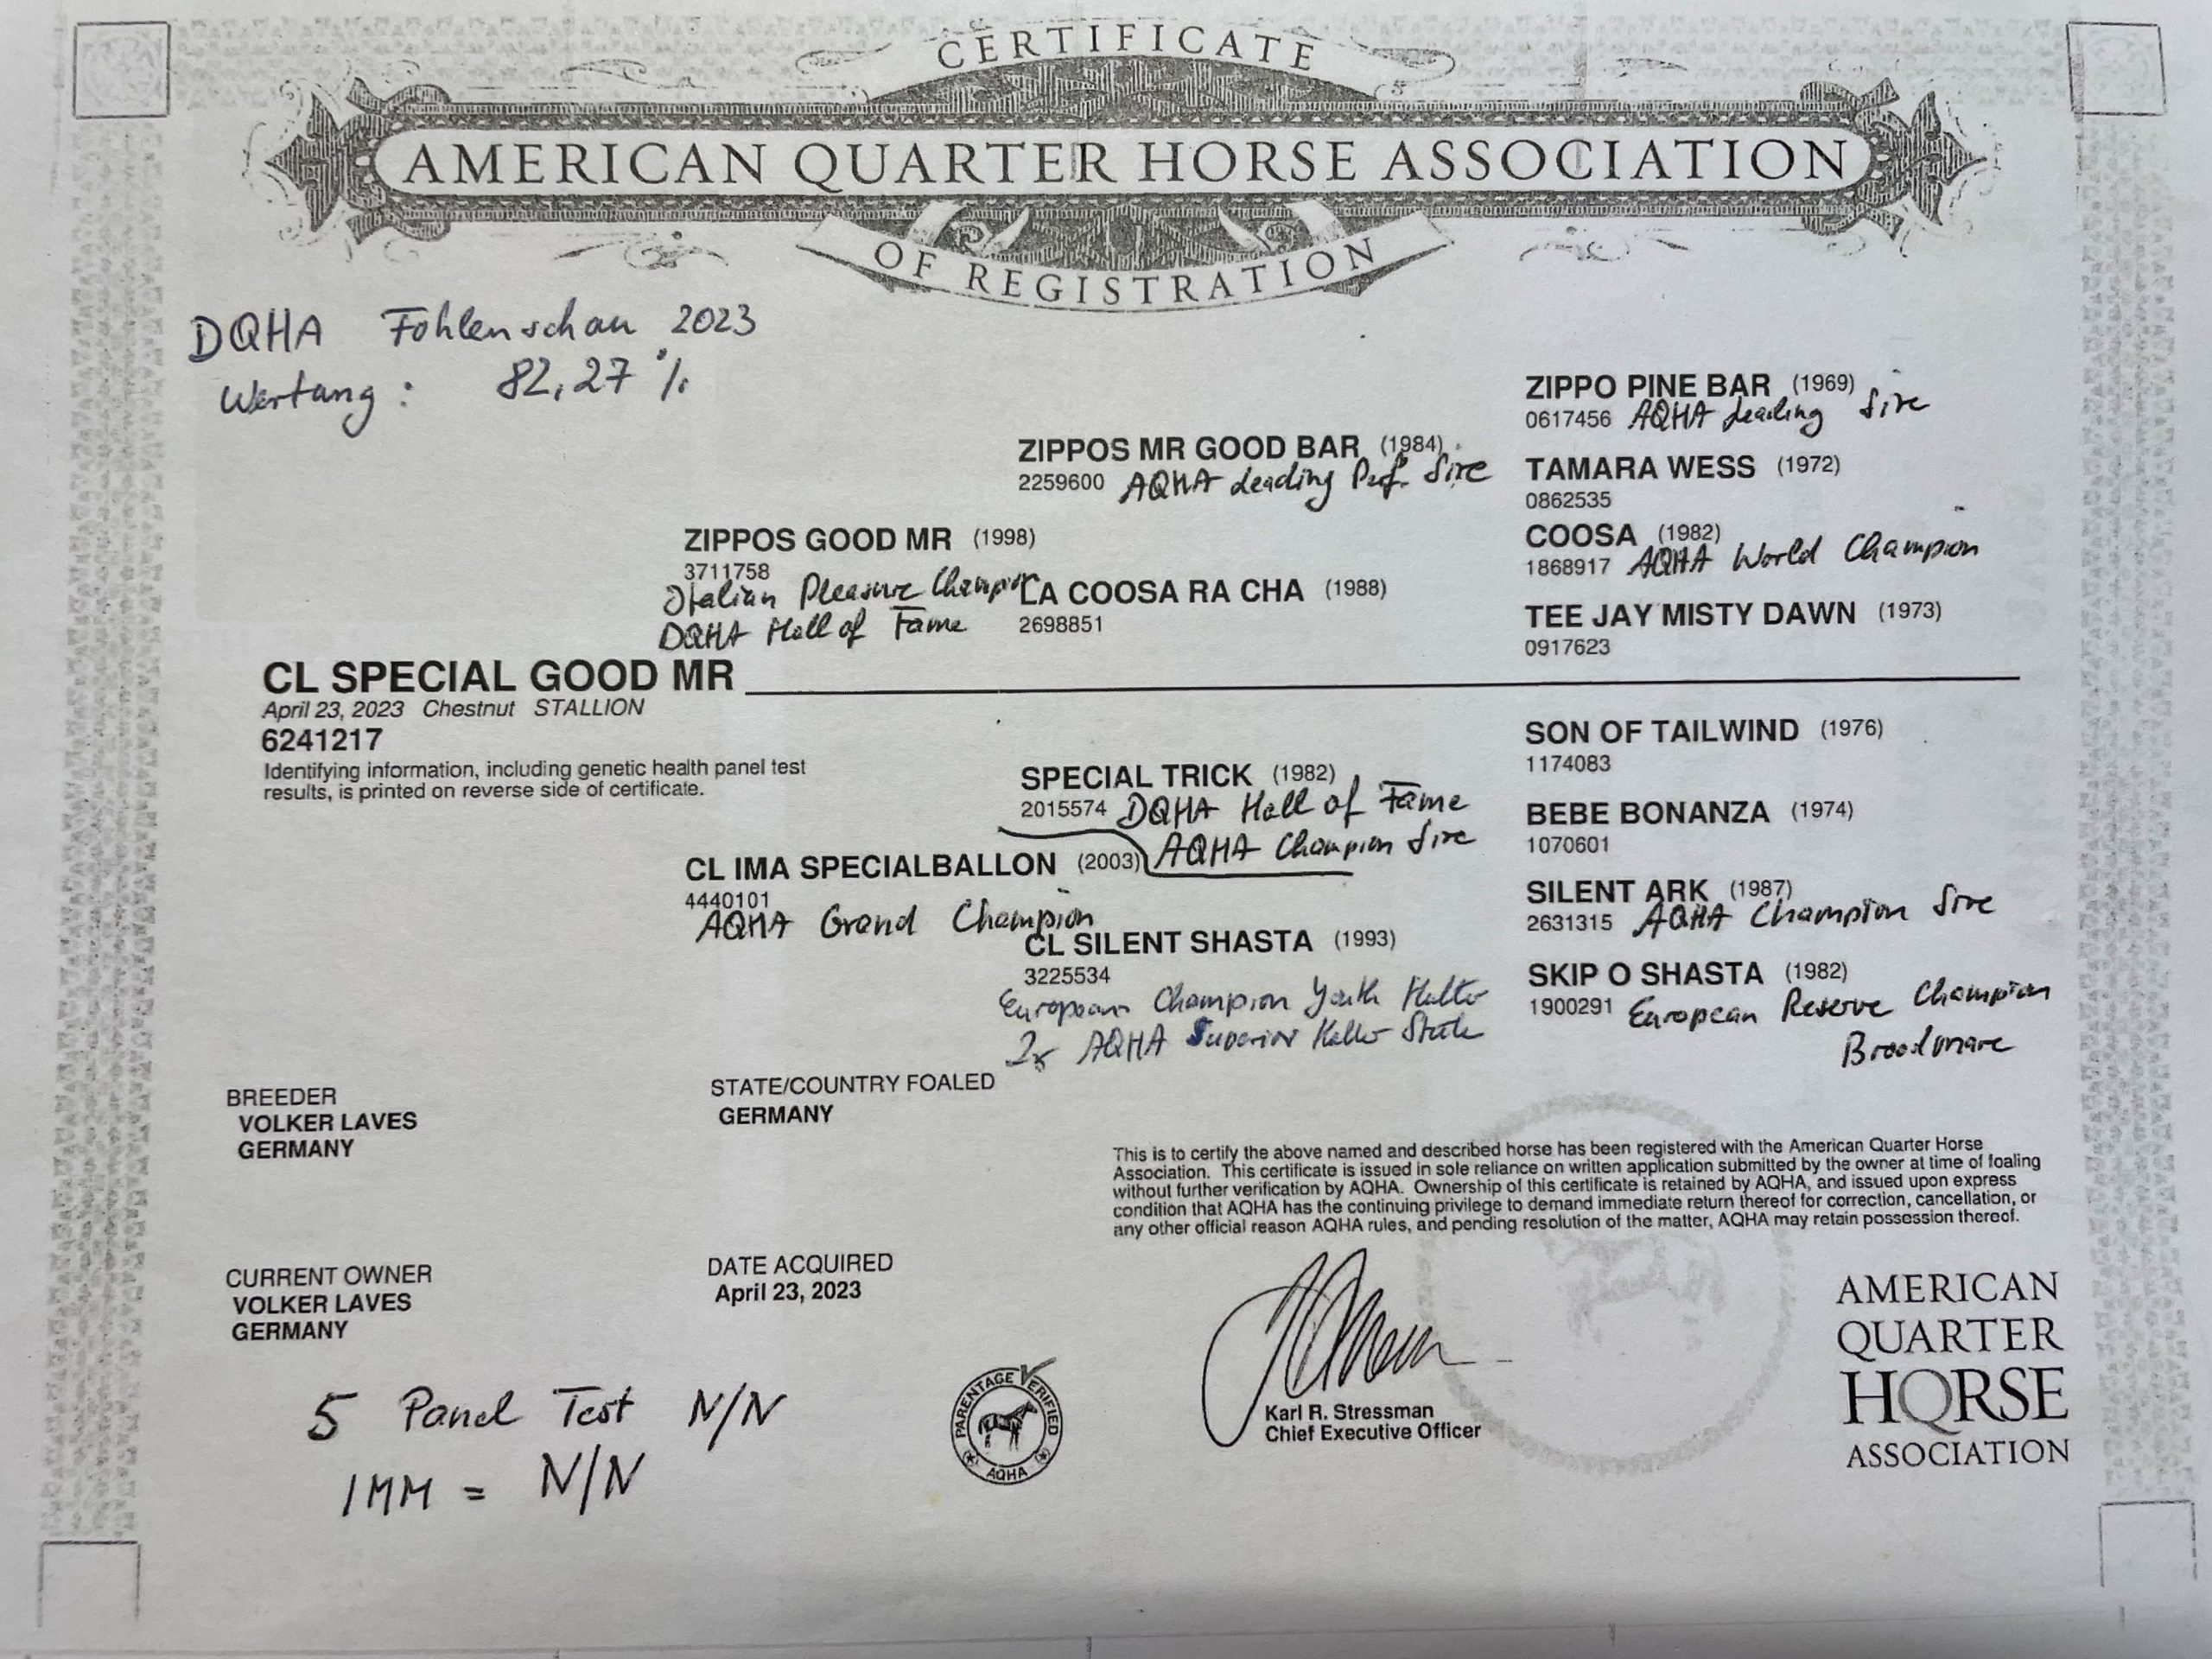 CERTIFICATE
AMERICAN QUARTER HORSE ASSOCIATION
OF REGISTRATION
DQHA Fohlenschau 2023
Wertung: 82,27 %
ZIPPO PINE BAR (1969)
0617456 AQHA Leading Sire
ZIPPOS MR GOOD BAR (1984)
2259600 AQHA Leading Perf. Sire
TAMARA WESS (1972)
0862535
ZIPPOS GOOD MR (1998)
3711758
Italian Pleasure Champion
DQHA Hall of Fame
COOSA (1982)
1868917 AQHA World Champion
LA COOSA RA CHA (1988)
2698851
TEE JAY MISTY DAWN (1973)
0917623
CL SPECIAL GOOD MR
April 23, 2023 Chestnut STALLION
6241217
Identifying information, including genetic health panel test
results, is printed on reverse side of certificate.
SON OF TAILWIND (1976)
1174083
SPECIAL TRICK (1982)
2015574 DQHA Hall of Fame
AQHA Champion Sire
BEBE BONANZA (1974)
1070601
CL IMA SPECIALBALLON (2003)
4440101
AQHA Grand Champion
SILENT ARK (1987)
2631315 AQHA Champion Sire
CL SILENT SHASTA (1993)
3225534
European Champion Youth Halter
2x AQHA Superior Halter Stute
SKIP O SHASTA (1982)
1900291 European Reserve Champion
Broodmare
BREEDER
VOLKER LAVES
GERMANY
STATE/COUNTRY FOALED
GERMANY
This is to certify the above named and described horse has been registered with the American Quarter Horse
Association. This certificate is issued in sole reliance on written application submitted by the owner at time of foaling
without further verification by AQHA. Ownership of this certificate is retained by AQHA, and issued upon express
condition that AQHA has the continuing privilege to demand immediate return thereof for correction, cancellation, or
any other official reason AQHA rules, and pending resolution of the matter, AQHA may retain possession thereof.
CURRENT OWNER
VOLKER LAVES
GERMANY
DATE ACQUIRED
April 23, 2023
5 Panel Test N/N
IMM = N/N
PARENTAGE VERIFIED
AQHA
Karl R. Stressman
Chief Executive Officer
AMERICAN
QUARTER
HORSE
ASSOCIATION